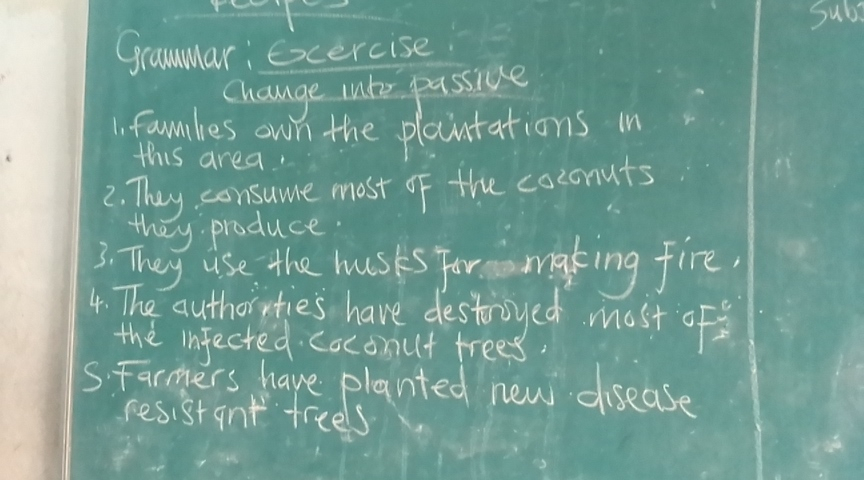 recipes
Subj
Grammar: Exercise:
Change into passive
1. Families own the plantations in
this area.
2. They consume most of the coconuts
they produce.
3. They use the husks for making fire.
4. The authorities have destroyed most of
the infected coconut trees.
5. Farmers have planted new disease
resistant trees